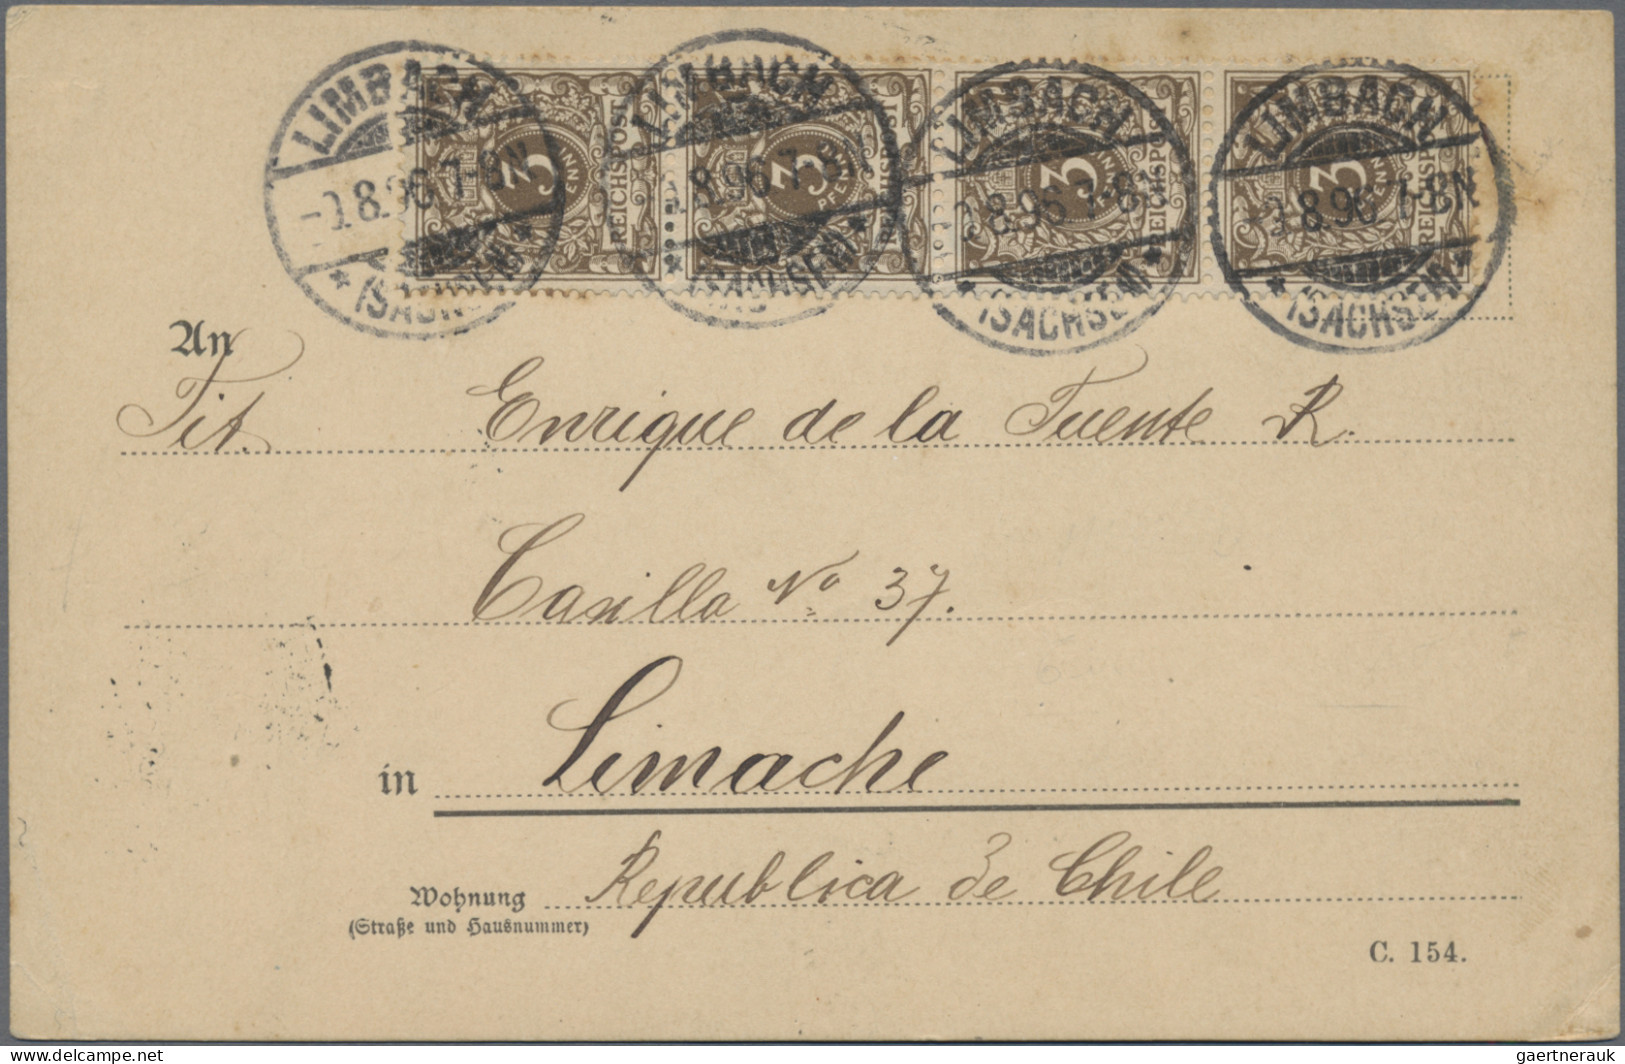 LIMBACH LIMBACH LIMBACH LIMBACH
3 PFENNIG REICHSPOST 3 PFENNIG REICHSPOST 3 PFENNIG REICHSPOST 3 PFENNIG REICHSPOST
8.96 7-8N 8.96 7-8N 8.96 7-8N 8.96 7-8N
* (SACHSEN) * * (SACHSEN) * * (SACHSEN) * * (SACHSEN) *
An
Tit. Enrique de la Fuente R.
Casilla No 37.
in Limache
Wohnung Republica de Chile
(Straße und Hausnummer)
C. 154.
delcampe.net
gaertnerauk